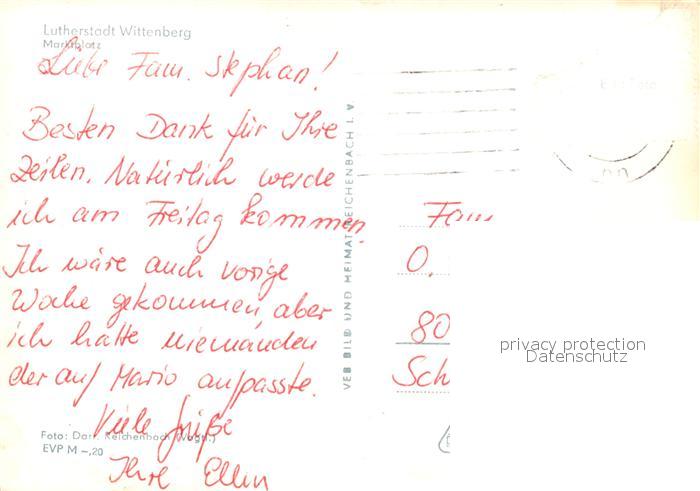 Lutherstadt Wittenberg
Marktplatz
Liebe Fam. Stephan!
Besten Dank für Ihre
Zeilen. Natürlich werde
ich am Freitag kommen.
Ich wäre auch vorige
Woche gekommen, aber
ich hatte niemanden
der auf Mario aufpasste.
Viele Grüße
Ihre Ellen
Foto: Darr, Reichenbach (Vogtl.)
EVP M -,20
VEB BILD UND HEIMAT REICHENBACH I. V
Fam
O.
80
Sch
privacy protection
Datenschutz